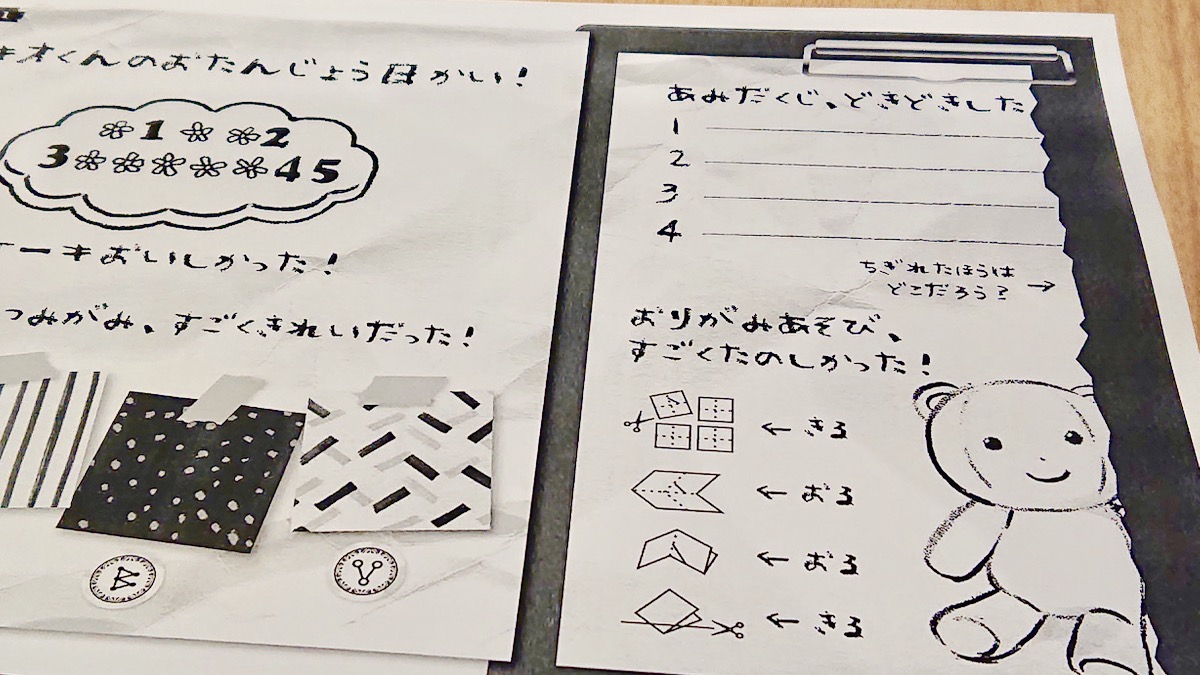 オくんのおたんじょう日かい！
❀1❀❀2
3❀❀❀❀❀45
ーキおいしかった！
つみがみ、すごくきれいだった！
あみだくじ、どきどきした
1
2
3
4
ちぎれたほうは
どこだろう？→
おりがみあそび、
すごくたのしかった！
←きる
←おる
←おる
←きる